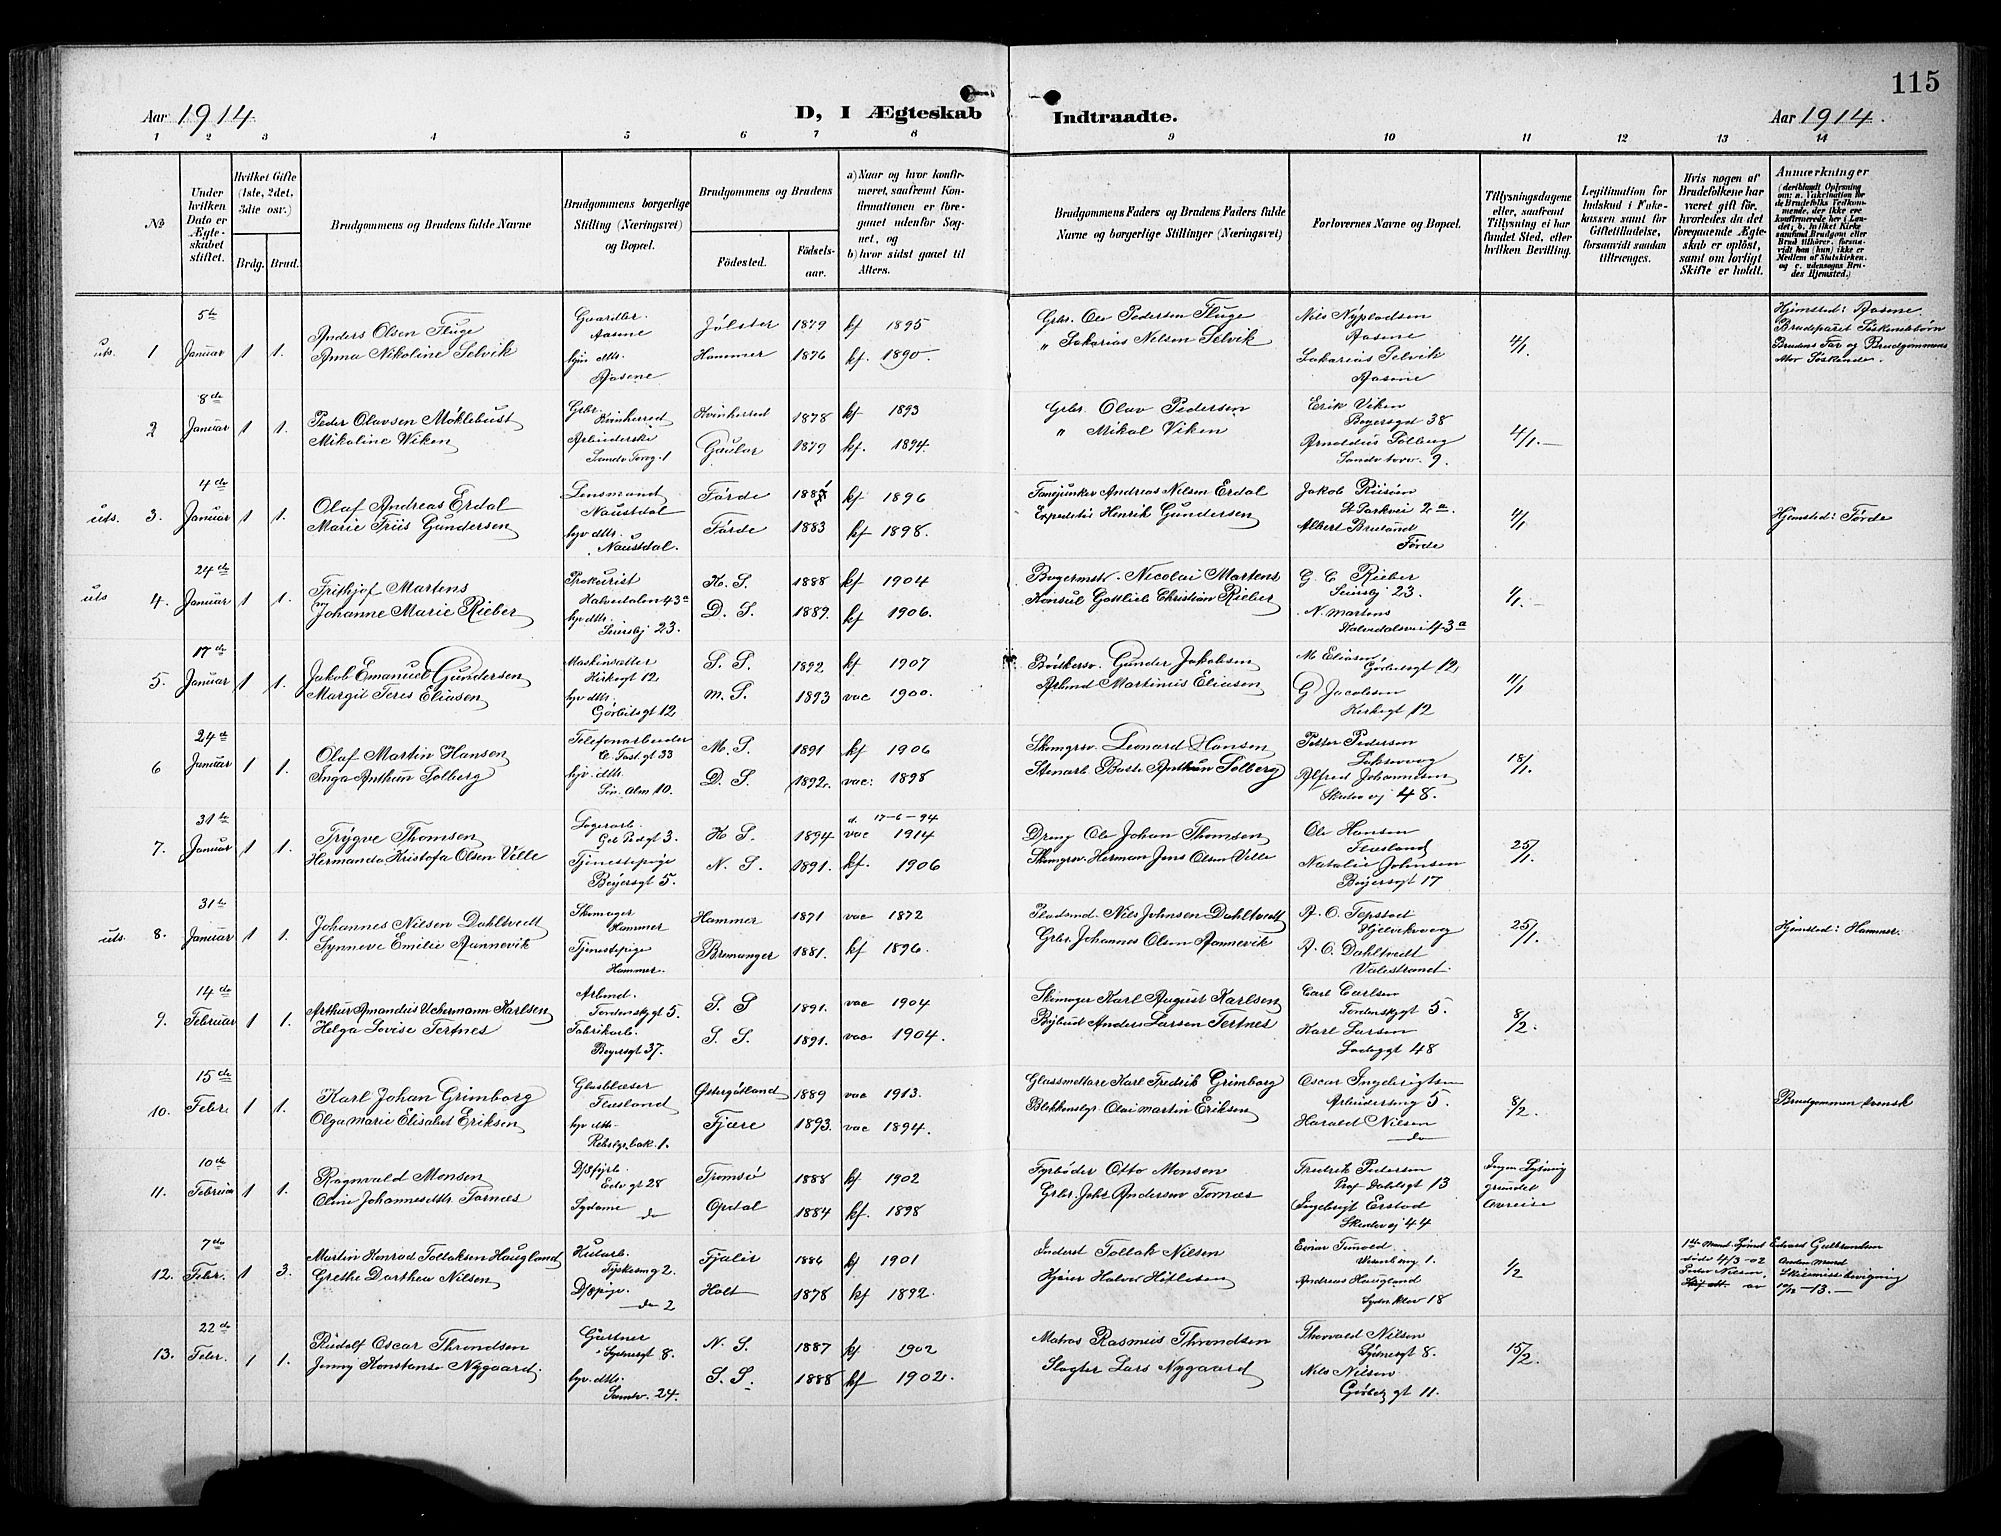 115
Aar 1914. D, I Ægteskab Indtraadte. Aar 1914.
1 2 3 4 5 6 7 8 9 10 11 12 13 14
No
Under hvilken Dato er Ægteskabet stiftet.
Hvilket Gifte (1ste, 2det, 3die osv.)
Brdg. Brud.
Brudgommens og Brudens fulde Navne
Brudgommens borgerlige Stilling (Næringsvei) og Bopæl.
Brudgommens og Brudens
Fødested. Fødselsaar.
a) Naar og hvor konfirmeret, saafremt Konfirmationen er foregaaet udenfor Sognet, og
b) hvor sidst gaaet til Alters.
Brudgommens Faders og Brudens Faders fulde Navne og borgerlige Stillinger (Næringsvei)
Forlovernes Navne og Bopæl.
Tillysningsdagene eller, saafremt Tillysning ei har fundet Sted, efter hvilken Bevilling.
Legitimation for Indskud i Enkekassen samt for Giftetilladelse, forsaavidt saadan tiltrænges.
Hvis nogen af Brudefolkene har været gift før, hvorledes da det foregaaende Ægteskab er opløst, samt om lovligt Skifte er holdt.
Anmærkninger
uts. 1 5te Januar 1 1.
Anders Olsen Fluge
Anna Nikoline Selvik
Gaardbr. Aasene
hjv dtts. Aasene
Jølster 1879 kf 1895
Hammer 1876 kf. 1890.
Grbr. Ole Pedersen Fluge
" Sakarias Nelsen Selvik
Nils Nypladsen
Aasene
Sakarias Selvik
Aasene
4/1.
Hjemsted: Aasene
Brudeparet Søskenebørn
Brudens Far og Brudgommens
Mor Søskende.
2 8de Januar 1 1.
Peder Olavsen Møklebust
Mikaline Viken
Grbr. Kvinherred
Arbeiderske
Sandv Torvg. 1
Kvinherred 1878 kf 1893
Gaular 1879 kf. 1894.
Grbr. Olav Pedersen
" Mikal Viken
Erik Viken
Beyersgd 38
Arnoldus Solberg
Sandv torv. 9.
4/1.
uts. 3. 4de Januar 1 1.
Olaf Andreas Erdal
Marie Friis Gundersen
Lensmand
Naustdal
hjv dtts.
Naustdal.
Førde kf 1896
Førde 1883 kf 1898.
Fanejunker Andreas Nilsen Erdal
Expeditør Henrik Gundersen
Jakob Riisøen
St Parkvei 2a.
Albert Bruland
Førde
4/1
Hjemsted: Førde
uts 4. 24de Januar 1 1.
Frithjof Martens
Johanne Marie Rieber
Prokurist
Kalvedalen 43a
hjv dtts.
23.
K. S. 1888 kf 1904
D. S. 1889. kf 1906.
Bagermstr. Nicolai Martens
Konsul Gottlieb Christian Rieber
G. C. Rieber
23.
N. Martens
Kalvedalsvei 43a
4/1.
5. 17de Januar 1 1.
Jakob Emanuel Gundersen
Margit Teres Eliasen
Maskinsætter
Kirkegt 12
hjv dtts.
Gørbitsgt 12
S. P. 1892 kf 1907
M. S. 1893 vac 1900.
Bødkersv. Gunder Jakobsen
Arbmd Martinus Eliasen
M Eliasen,
Gørbitsgt 12
G Jacobsen
Kirkegt 12
11/1
6 24de Januar 1 1.
Olaf Martin Hansen
Inga Anthun Solberg
Telefonarbeider
C. Fost. gt 33
hjv. dtts.
Sn. Alm 10.
M. S. 1891 kf 1906
D. S. 1892. vac: 1898
Skomgrsv. Leonard Hansen
Stenarb. Baste Anthun Solberg
Petter Pedersen
Laksevaag
Alfred Johannesen
Skudev vj 48.
18/1.
7. 31te Januar 1 1.
Trygve Thomsen
Hermanda Kristofa Olsen Velle
Lagerarb.
Geb Pedsgt 3.
Tjenestepige
Beyersgt 5.
K S. 1894 d. 17-6-94 vac 1914
N. S. 1891. kf. 1906
Dreng Ole Johan Thomsen
Skomgrsv. Herman Jens Olsen Velle
Ole Hansen
Flasland
Natalie Johnsen
Beyersgt 17
25/1.
uts. 8. 31te Januar 1 1.
Johannes Nilsen Dahltvedt
Synneve Emilie Rannevik
Skomager
Hammer
Tjenestepige
Hammer.
Hammer 1871 vac 1872
Bremanger 1881. kf 1896.
Pladsmd. Nils Johnsen Dahltvedt
Grbr. Johannes Olsen Rannevik
A. O. Tepstad
Hjelvikvaag
A. O. Dahltvedt
Valestrand.
25/1.
Hjemsted: Hammer.
9. 14de Februar 1 1.
Arthur Amandus Uchermann Karlsen
Helga Lovise Tertnes
Arbmd.
Tordenskgt 5.
Fabrikarb.
Beyersgt 37.
S. S 1891. vac 1904
S. S. 1891. vac 1904.
Skomager Karl August Karlsen
Bybud Anders Larsen Tertnes
Carl Carlsen
Tordenskgt 5.
Karl Larsen
Ladeggt 48
8/2.
10. 15de Febr. 1 1.
Karl Johan Grimborg
Olga Marie Elisabet Eriksen
Glasblæser
Flasland
hjv dtts.
Rebslgrbak. 1.
Østergøtland 1889 vac 1913.
Fjære 1893. vac 1894.
Glassmeltare Karl Fredrik Grimborg
Blekkenslgr. Olai Martin Eriksen
Oscar Ingebrigtsen
Arbeidersmg 5.
Harald Nilsen
do
8/2.
Brudgommen svensk
11. 10de Februar 1 1.
Ragnvald Monsen
Oline Johannesdtr Tornæs
D/sfyrb.
Edv gt 28
Sydame
do
Tromsø 1888 kf 1902
Opdal 1884 kf. 1898
Fyrbøder Otto Monsen
Grbr. Johs Andersen Tornæs
Fredrik Pedersen
Prof Dahlsgt 13
Ingebrigt Erstad
Skudevj 44
Ingen Lysning
grundet
avreise
12. 7de Febr. 1 3.
Martin Konrad Tollaksen Haugland
Grethe Dorthea Nilsen
Kularb.
Tyskesmg 2.
D/spige
do 2
Fjaler 1886 kf 1901
Holt 1878 kf 1892.
Inderst Tollak Nilsen
Kjører Halvor Hitlesen
Einar Timold
1.
Andreas Haugland
Sydn. klov 18
1/2
1ste Mand Sømd Edvard Gulbrandsen
døde 4/3-02 Anden Mand
Peder Nilsen, Skilsmissebevigning
av -13.
13. 22de Febr. 1 1.
Rudolf Oscar Throndsen
Jenny Konstanse Nygaard.
Gartner
Sydnesgt 8.
hjv. dtts.
Sandv. 24.
N. S. 1887 kf 1902
S. S. 1888 kf 1902.
Matros Rasmus Throndsen
Slagter Lars Nygaard
Thorvald Nilsen
Sydnesgt 8.
Nils Nilsen
Gørbitz gt 11.
15/2.